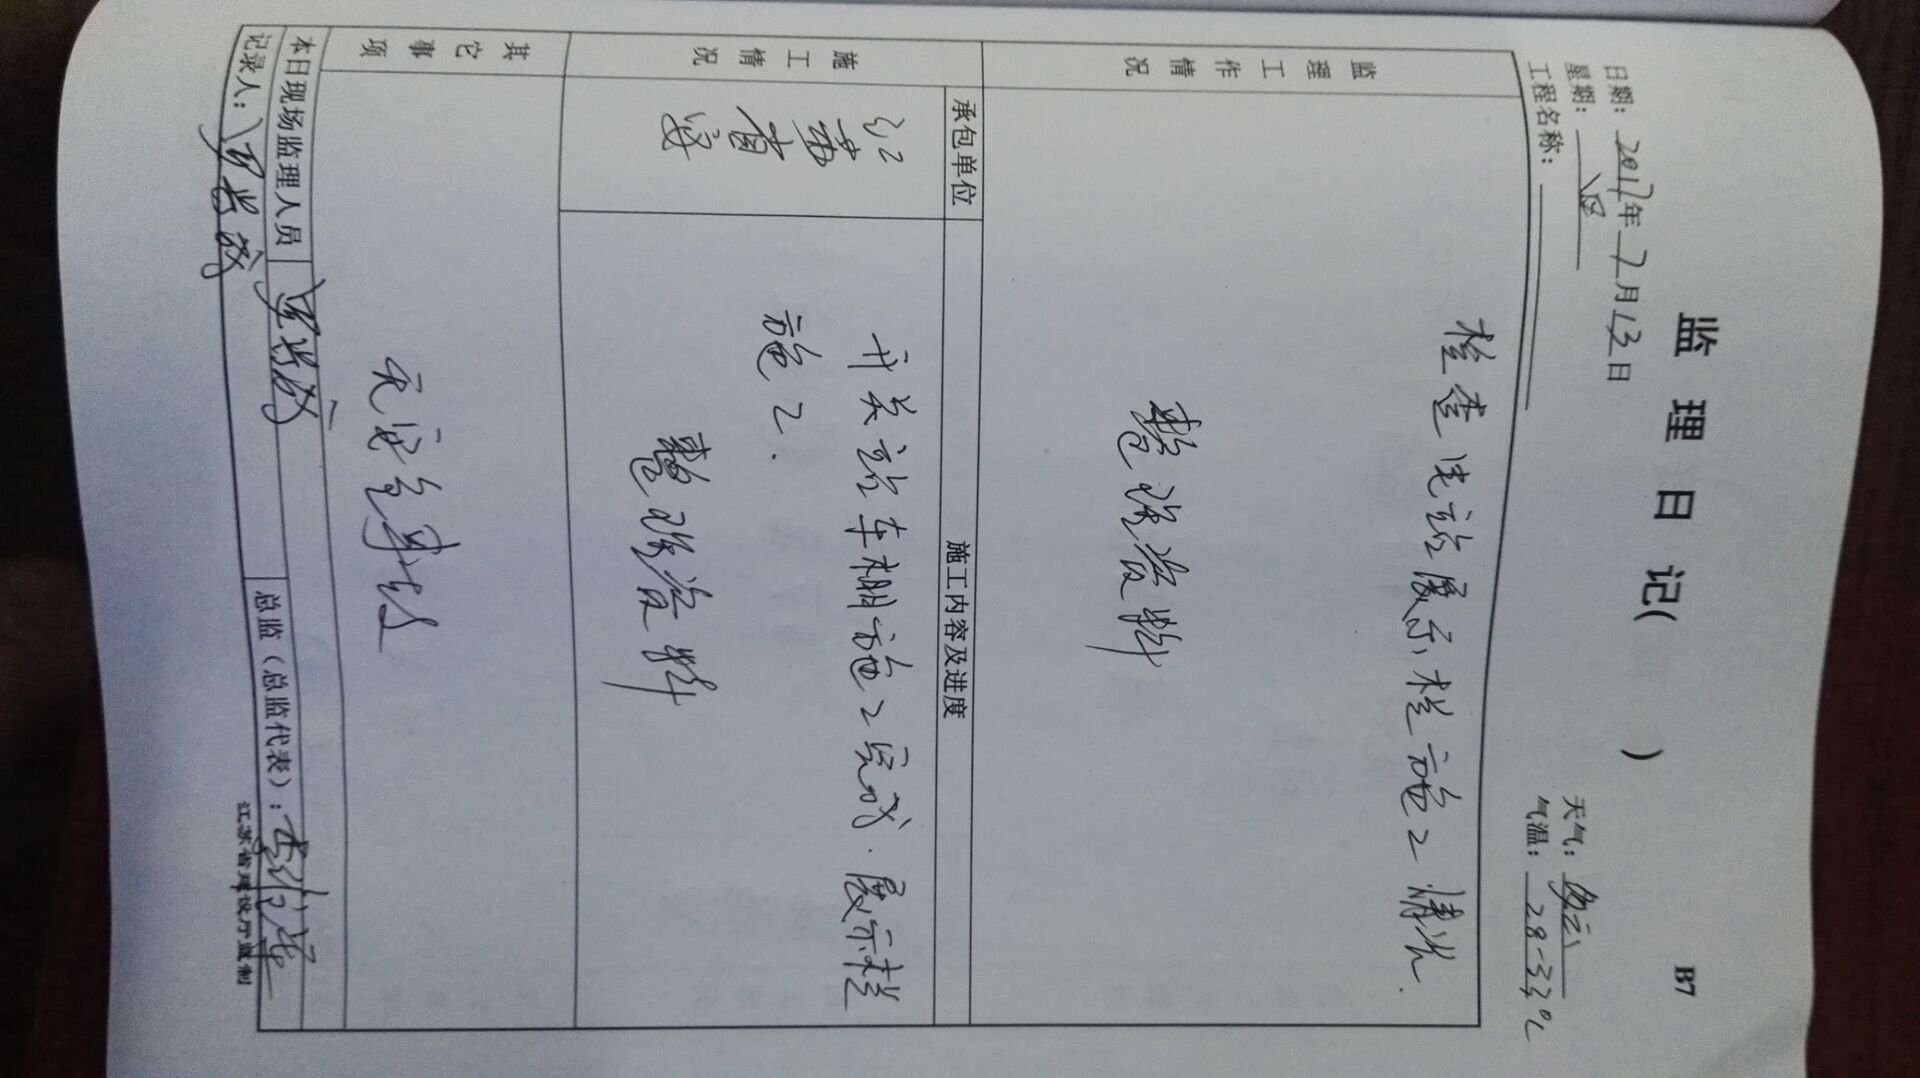 监理日记(    )
B7
日期：2017年7月13日
天气：多云
星期：四
气温：28-33℃
工程名称：
监理工作情况
检查 展示栏施工情况.
整理资料
施工情况
承包单位
施工内容及进度
江苏
开关站车棚施工完成.展示栏
施工.
整理资料
其它事项
无安全事故
本日现场监理人员
记录人：
总监（总监代表）：
江苏省建设厅监制